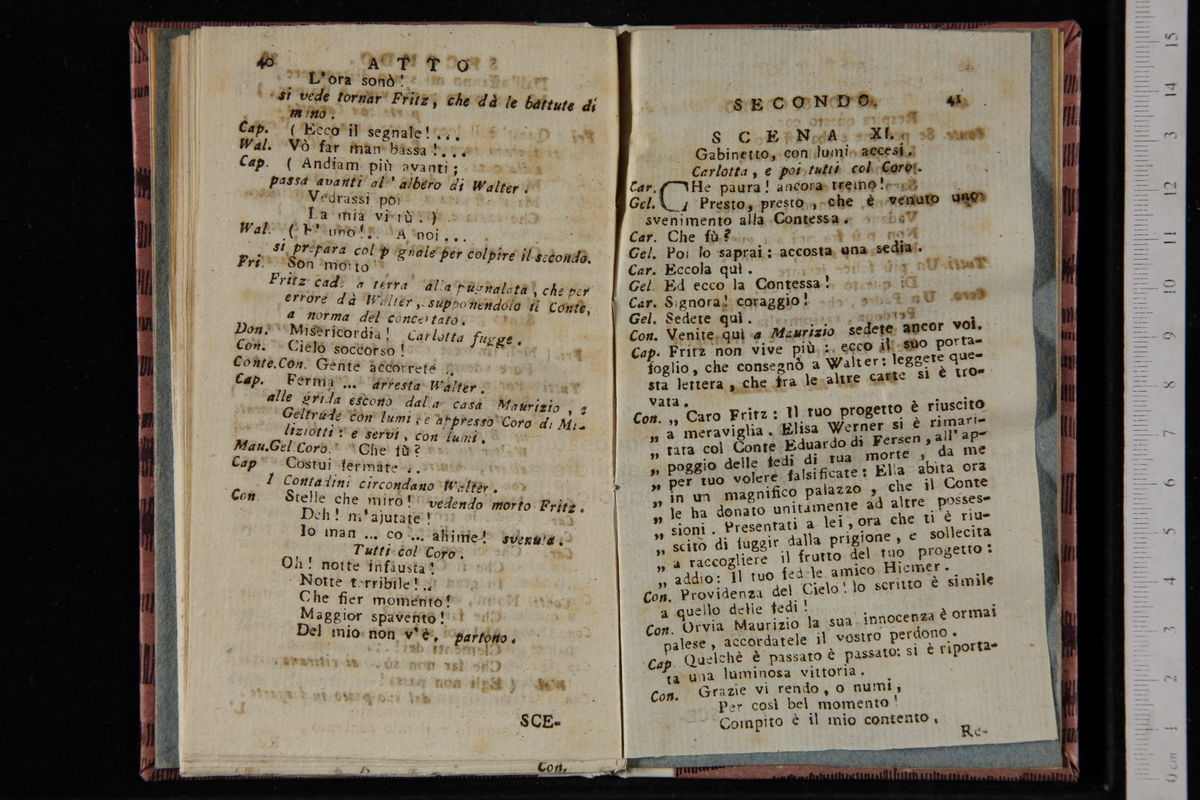 40 ATTO
L'ora sonò!
si vede tornar Fritz, che dà le battute di
mano.
Cap. ( Ecco il segnale!...
Wal. Vò far man bassa!...
Cap. ( Andiam più avanti;
passa avanti al' albero di Walter.
Vedrassi poi
La mia virtù.)
Wal. ( E' uno!.. A noi...
si prepara col pugnale per colpire il secondo.
Fri. Son morto
Fritz cade a terra alla pugnalata, che per
errore dà Walter, supponendolo il Conte,
a norma del concertato.
Don. Misericordia! Carlotta fugge.
Con. Cielo soccorso!
Conte.Con. Gente accorrete ..
Cap. Ferma ... arresta Walter.
alle grida escono dalla casa Maurizio, e
Geltrude con lumi, e appresso Coro di Mi-
liziotti: e servi, con lumi.
Mau.Gel Coro. Che fù?
Cap Costui fermate ..
I Contadini circondano Walter.
Con Stelle che miro! vedendo morto Fritz.
Deh! m'ajutate!
Io man ... co ... ahime! svenuta.
Tutti col Coro.
Oh! notte infausta!
Notte terribile!..
Che fier momento!
Maggior spavento!
Del mio non v'è. partono.
SCE-
Con.
SECONDO. 41
SCENA XI.
Gabinetto, con lumi accesi.
Carlotta, e poi tutti col Coro.
Car. CHe paura! ancora tremo!
Gel. Presto, presto, che è venuto uno
svenimento alla Contessa.
Car. Che fù?
Gel. Poi lo saprai: accosta una sedia.
Car. Eccola quì.
Gel. Ed ecco la Contessa!
Car. Signora! coraggio!
Gel. Sedete quì.
Con. Venite quì a Maurizio sedete ancor voi.
Cap. Fritz non vive più: ecco il suo porta-
foglio, che consegnò a Walter: leggete que-
sta lettera, che fra le altre carte si è tro-
vata.
Con. „ Caro Fritz: Il tuo progetto è riuscito
„ a meraviglia. Elisa Werner si è rimari-
„ tata col Conte Eduardo di Fersen, all'ap-
„ poggio delle fedi di tua morte, da me
„ per tuo volere falsificate: Ella abita ora
„ in un magnifico palazzo, che il Conte
„ le ha donato unitamente ad altre posses-
„ sioni. Presentati a lei, ora che ti è riu-
„ scito di fuggir dalla prigione, e sollecita
„ a raccogliere il frutto del tuo progetto:
„ addio: Il tuo fedele amico Hicmer.
Con. Providenza del Cielo! lo scritto è simile
a quello delle fedi!
Con. Orvia Maurizio la sua innocenza è ormai
palese, accordatele il vostro perdono.
Cap Quelchè è passato è passato: si è riporta-
ta una luminosa vittoria.
Con. Grazie vi rendo, o numi,
Per così bel momento!
Compito è il mio contento,
Re-
0 cm 1 2 3 4 5 6 7 8 9 10 11 12 13 14 15